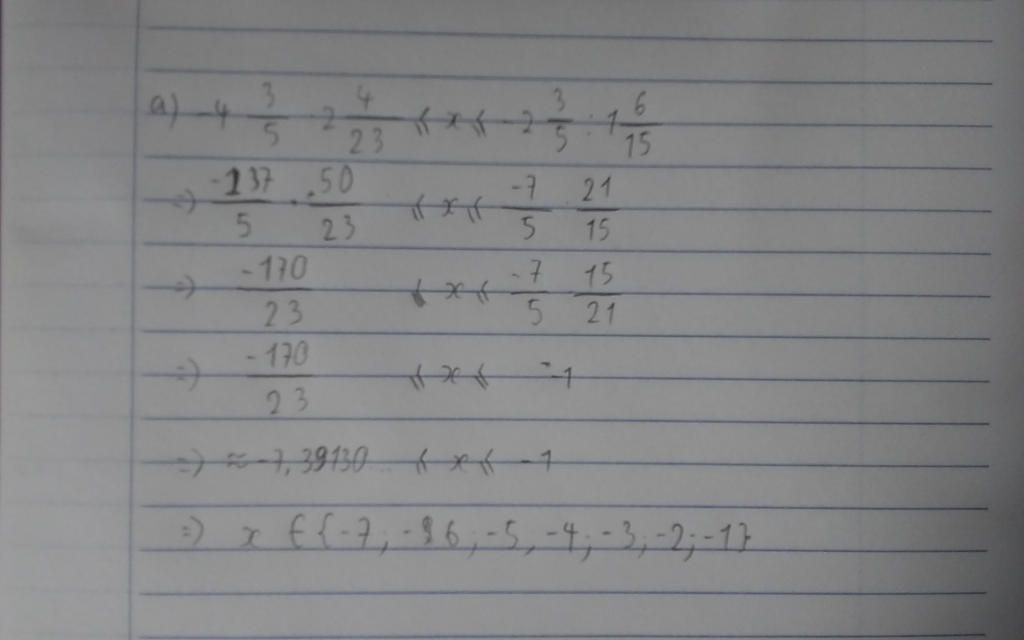 a) -4 3/5 · 2 4/23 ≤ x ≤ -2 3/5 : 1 6/15
=> -137/5 · 50/23 ≤ x ≤ -7/5 · 21/15
=> -170/23 ≤ x ≤ -7/5 · 15/21
=> -170/23 ≤ x ≤ -1
=> ≈ -7,39130... ≤ x ≤ -1
=> x ∈ {-7; -6; -5, -4; -3; -2; -1}